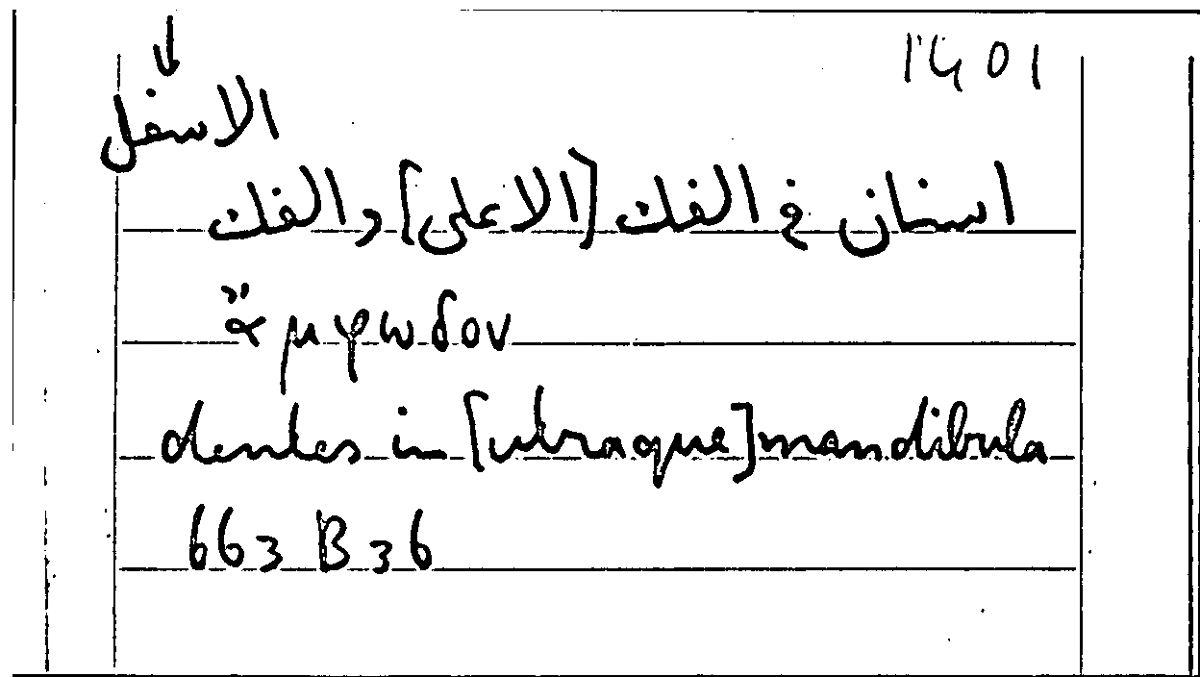 1401
الاسفل
اسنان في الفك [الاعلى] والفك
ἄμφωδον
dentes in [utraque] mandibula
663 B 36